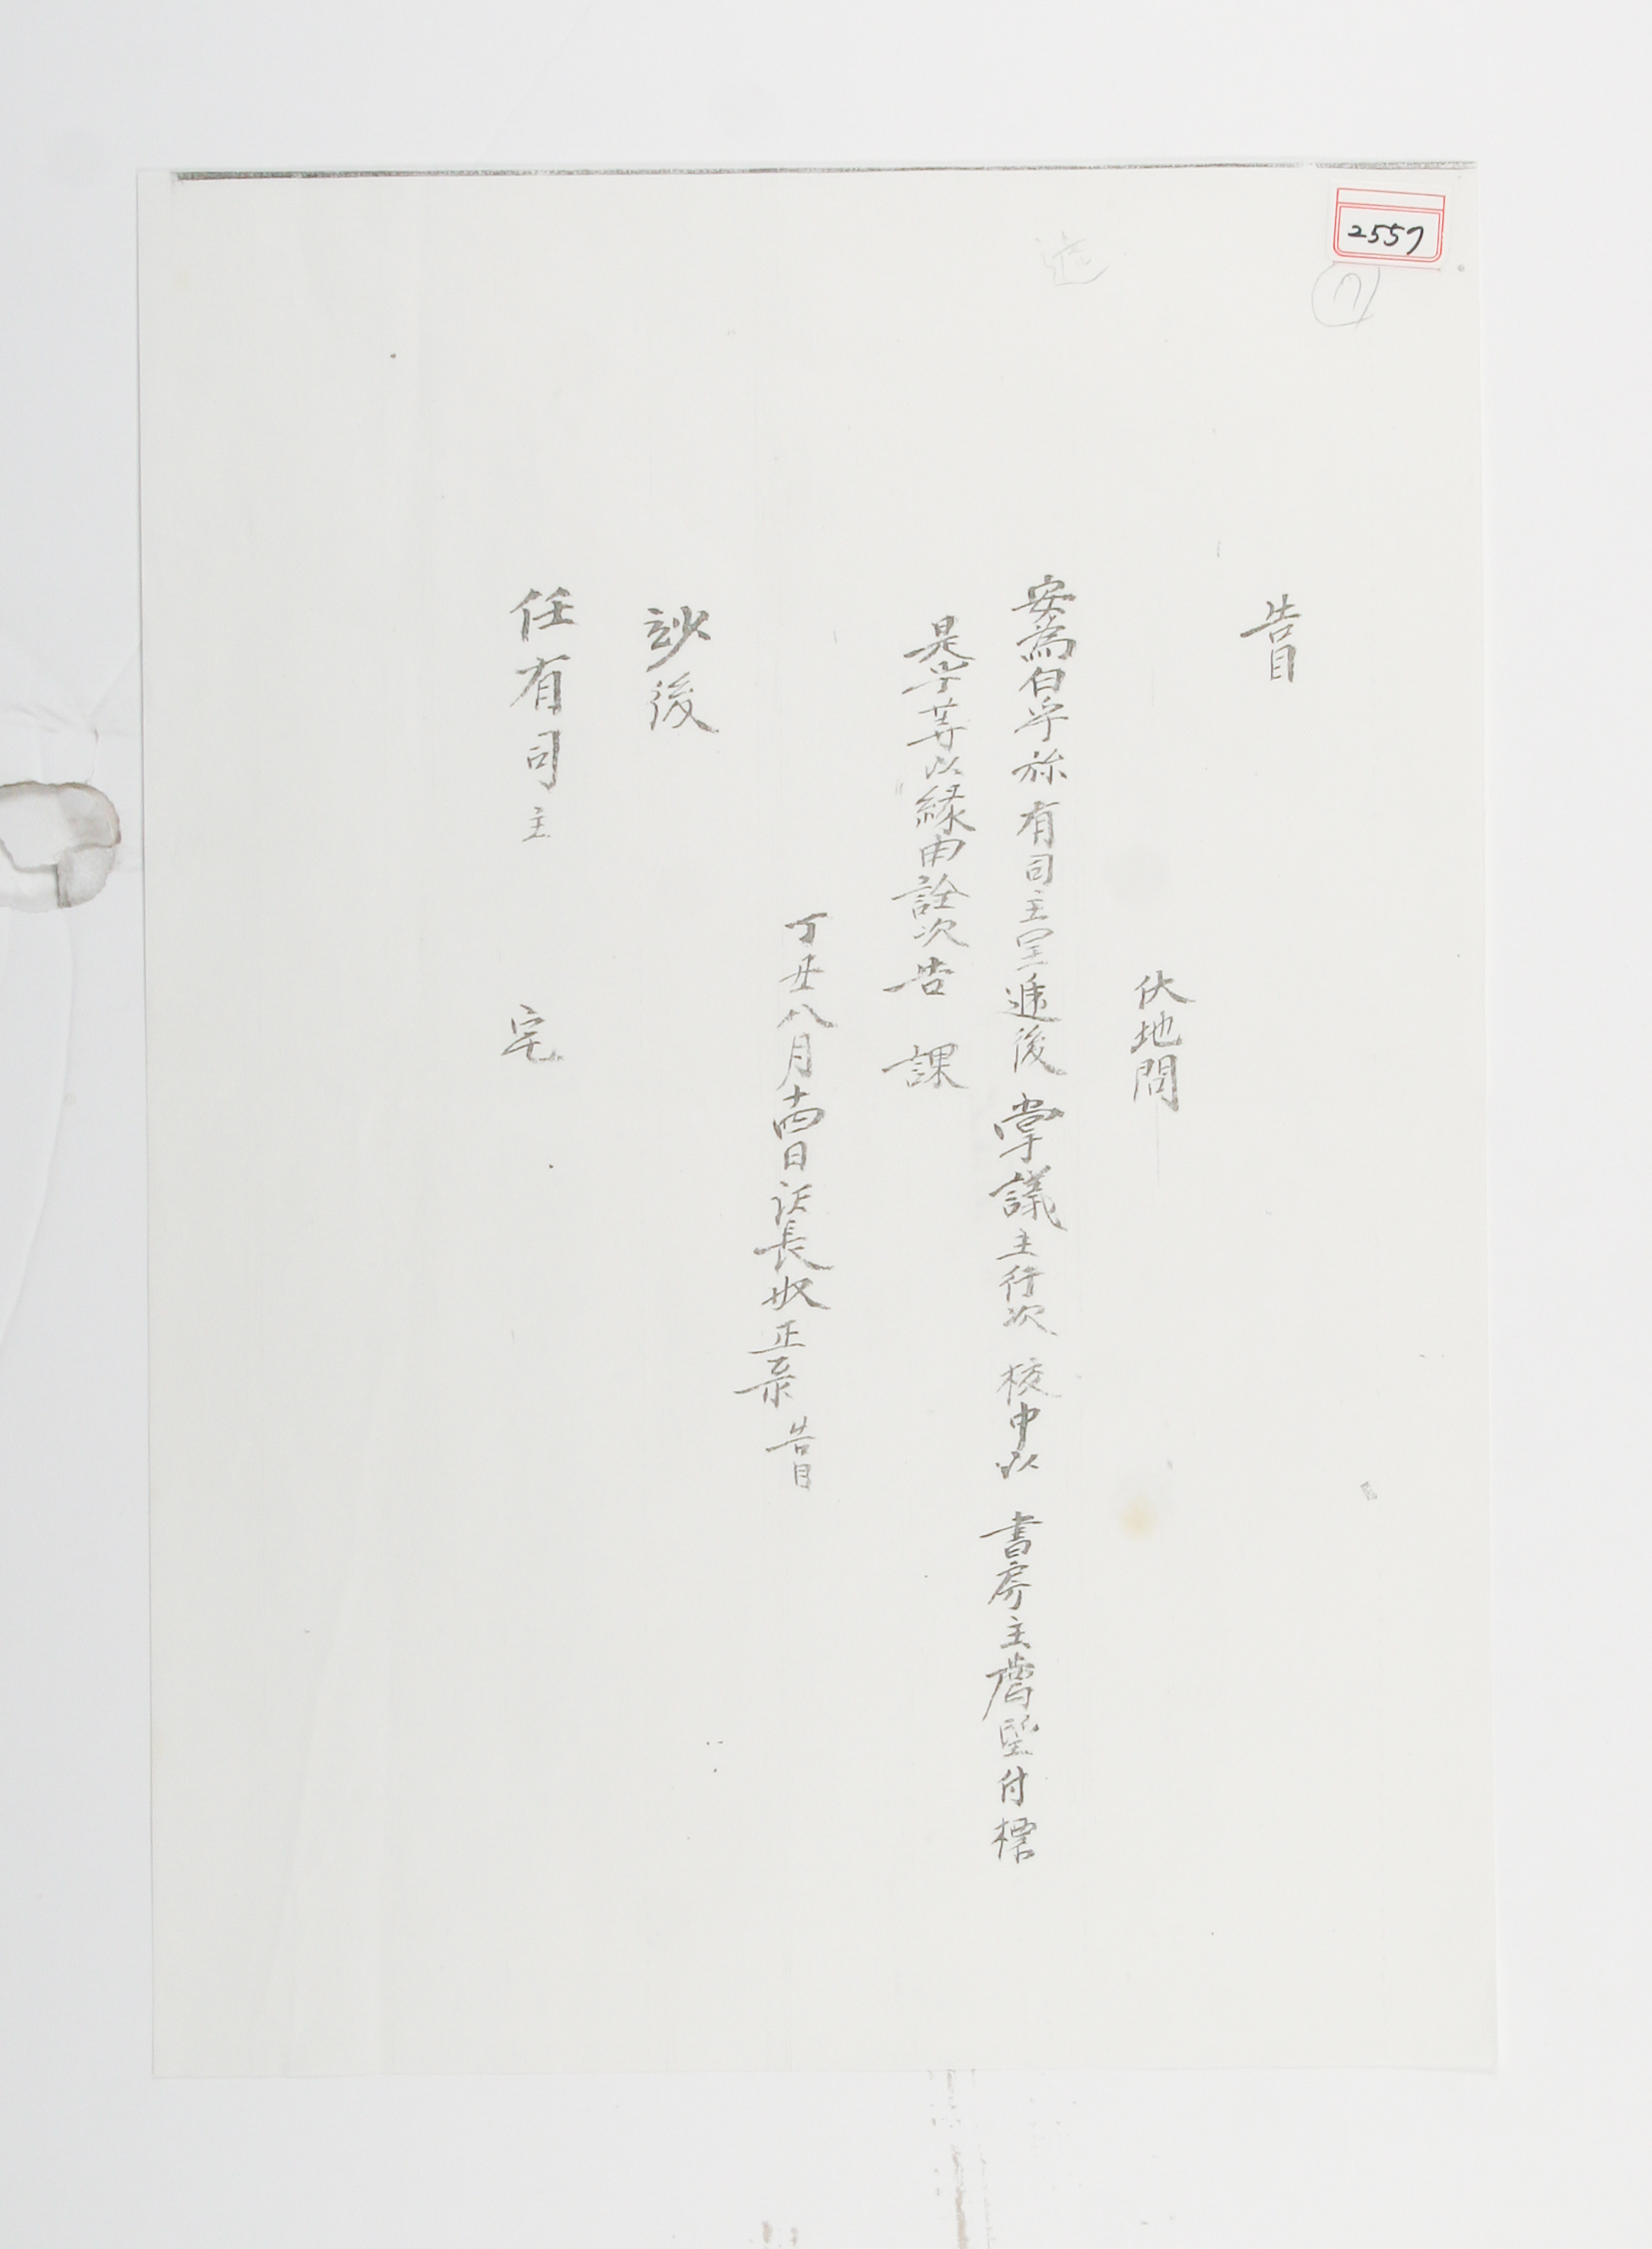 2557
告目
伏地問
安爲白乎旀 有司主 遞後 掌議主行次 校中以 書房主 付標
是乎等以緣由詮次告 課
丁丑八月十四日 長奴正 告目
後
任有司主 宅